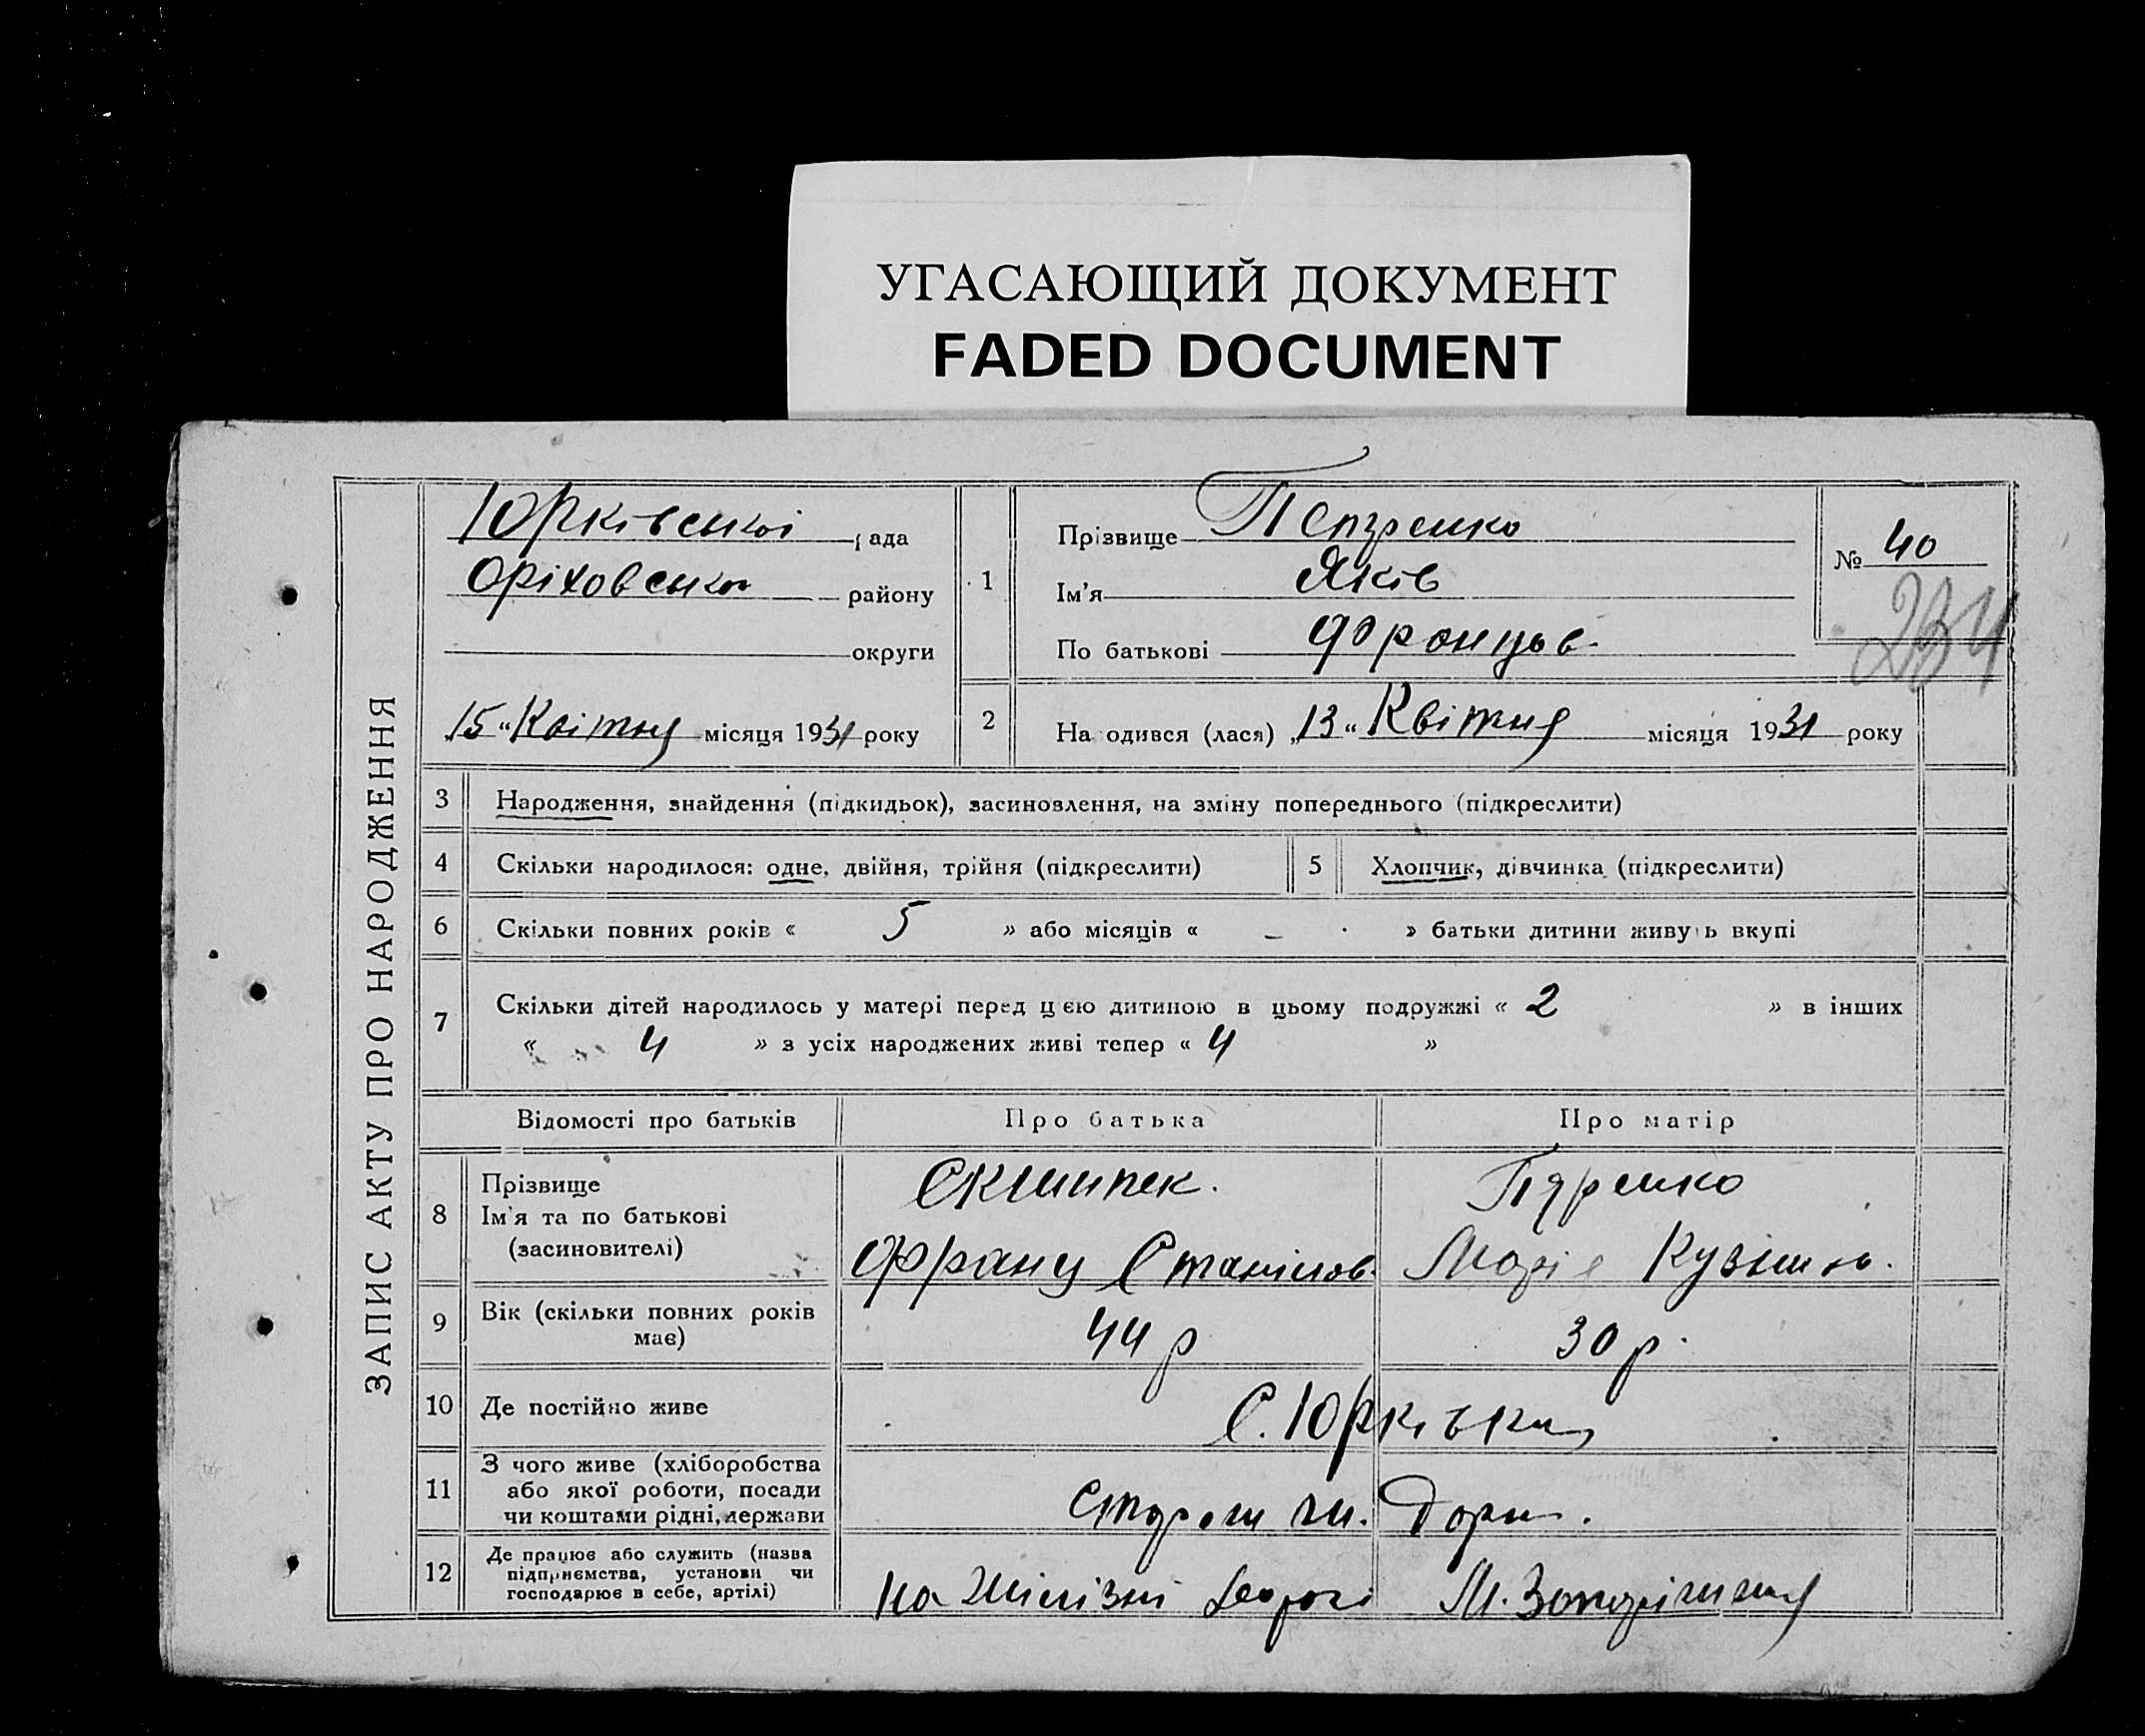 УГАСАЮЩИЙ ДОКУМЕНТ
FADED DOCUMENT
ЗАПИС АКТУ ПРО НАРОДЖЕННЯ
Юрківської рада
Оріховсько району
округи
„15“ Квітня місяця 1931 року
1 Прізвище Петренко
Ім'я Яків
По батькові Францов.
№ 40
234
2 На одився (лася) „13“ Квітня місяця 1931 року
3 Народження, знайдення (підкидьок), засиновлення, на зміну попереднього (підкреслити)
4 Скільки народилося: одне, двійня, трійня (підкреслити) 5 Хлопчик, дівчинка (підкреслити)
6 Скільки повних років « 5 » або місяців « – » батьки дитини живуть вкупі
7 Скільки дітей народилось у матері перед цією дитиною в цьому подружжі « 2 » в інших
« 4 » з усіх народжених живі тепер « 4 »
Відомості про батьків Про батька Про матір
8 Прізвище
Ім'я та по батькові
(засиновителі)
Скшипек.
Франц Станіслов.
Марія Кузьмин.
9 Вік (скільки повних років
має)
44 р 30 р.
10 Де постійно живе С. Юрківка
11 З чого живе (хліборобства
або якої роботи, посади
чи коштами рідні, держави
12 Де працює або служить (назва
підприємства, установи чи
господарює в себе, артілі)
на Залізні дорозі